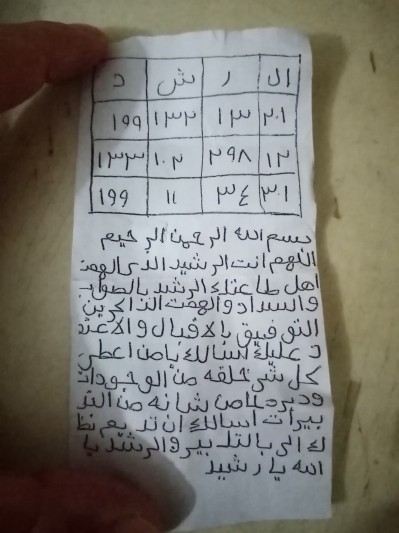 ال ر ش د
٢٠١ ١٣ ١٣٢ ١٩٩
١٢ ٢٩٨ ١٠٢ ١٣٣
٣٠١ ٣٤ ١١ ١٩٩
بسم الله الرحمن الرحيم
اللهم انت الرشيد الذي الهمت
اهل طاعتك الرشد بالصواب
والسداد والهمت الذاكرين
التوفيق بالاقبال والاعتما
د عليك اسالك يامن اعطى
كل شي خلقه من الوجودات
ودبره من شانه من التد
بيرات اسالك ان تديم نظ
ك الي بالتدبير والرشد يا
الله يا رشيد